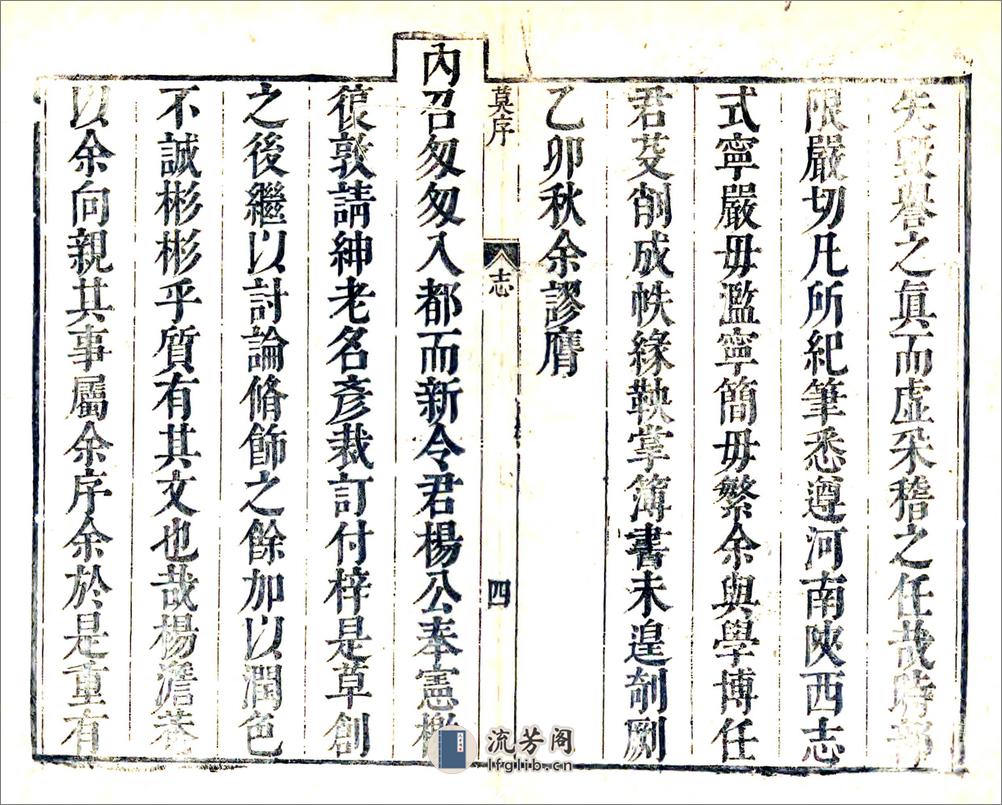 失毀譽之真而虛罙稽之任哉時部
限嚴切凡所紀筆悉遵河南陝西志
式寧嚴毋濫寧簡毋繁余與學博任
君芟削成帙緣鞅掌簿書未遑剞劂
乙卯秋余謬膺
莫序
志
四
內召匆匆入都而新令君楊公奉憲檄
復敦請紳老名彥裁訂付梓是草創
之後繼以討論脩飾之餘加以潤色
不誠彬彬乎質有其文也哉楊澹菴
以余向親其事屬余序余於是重有
流芳阁
lfglib.cn